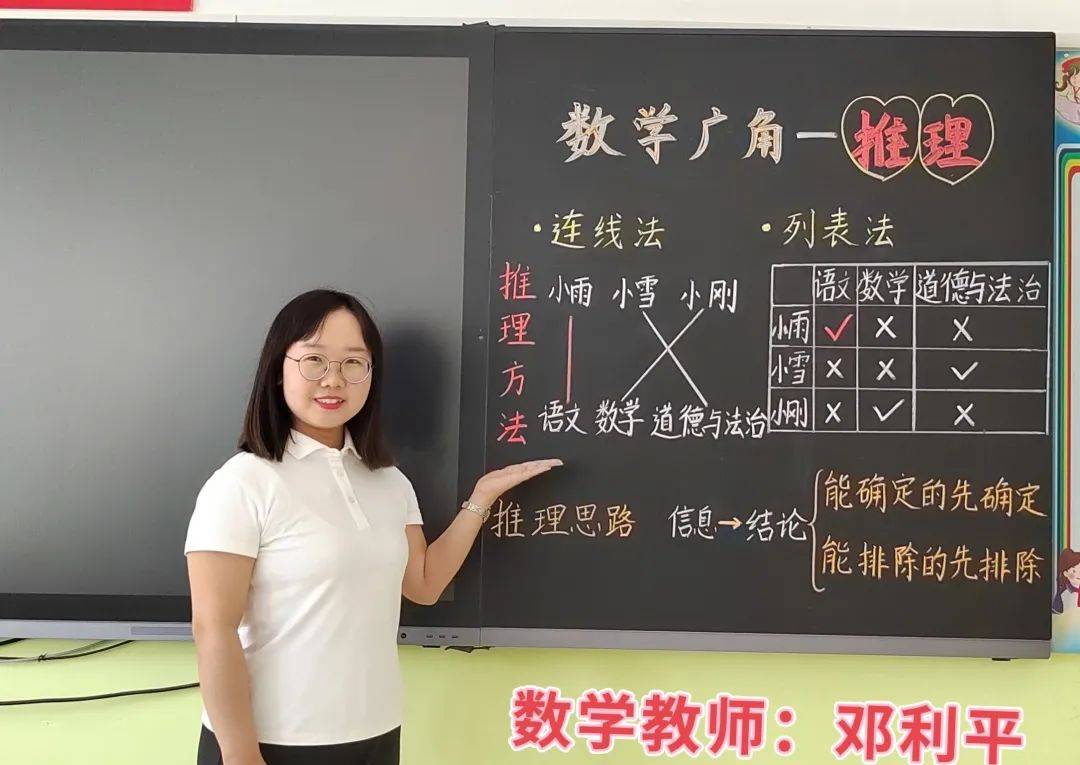 数学广角—推理
·连线法
·列表法
推理方法
小雨 小雪 小刚
语文 数学 道德与法治
语文 数学 道德与法治
小雨 ✓ × ×
小雪 × × ✓
小刚 × ✓ ×
推理思路 信息→结论
能确定的先确定
能排除的先排除
数学教师：邓利平